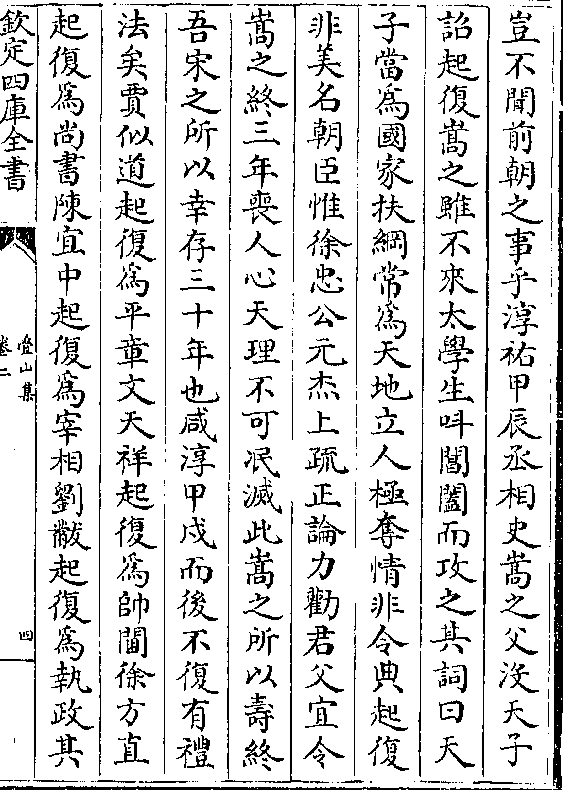 豈不聞前朝之事乎淳祐甲辰丞相史嵩之父没天子
詔起復嵩之雖不來太學生呌閽闔而攻之其詞曰天
子當爲國家扶綱常爲天地立人極奪情非令典起復
非美名朝臣惟徐忠公元杰上疏正論力勸君父宜令
嵩之終三年喪人心天理不可泯滅此嵩之所以壽終
吾宋之所以幸存三十年也咸淳甲戍而後不復有禮
法矣賈似道起復爲平章文天祥起復爲帥閫徐方直
起復爲尚書陳宜中起復爲宰相劉黻起復爲執政其
欽定四庫全書
疊山集
卷二
四